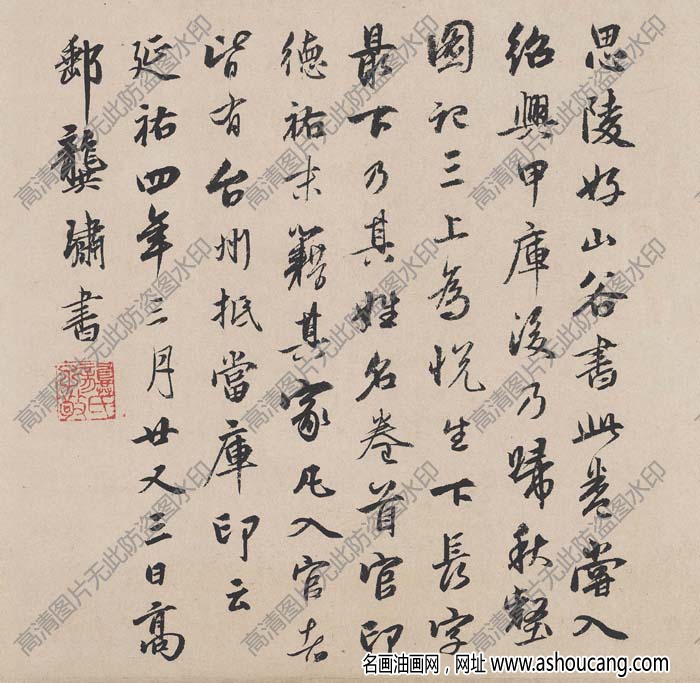 思陵好山谷書此卷嘗入
紹興甲庫後乃歸秋壑
圖記三上為悅生下長字
最下乃其姓名卷首官印
德祐末籍其家凡入官者
皆有台州抵當庫印云
延祐四年三月廿又三日高
郵龔璛書
高清图片无此防盗图水印
名画油画网，网址 www.ashoucang.com